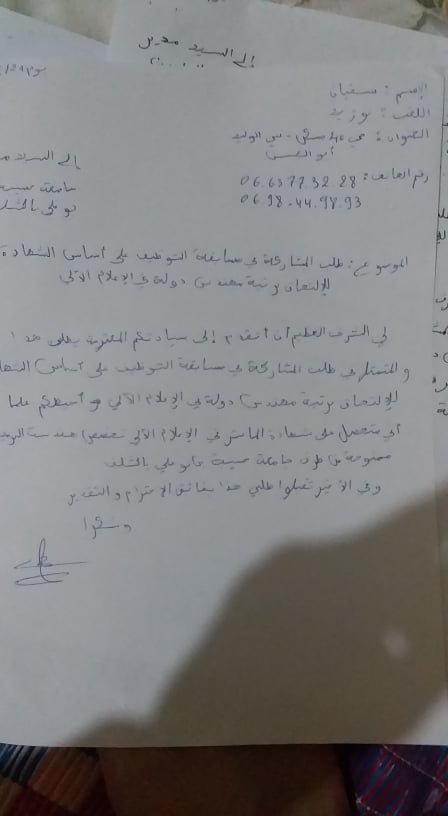 إلى السيد مدير
الإسم : سفيان
اللقب : بوزيد
العنوان : حي 40 سكن - بني الوليد
أبو الحسن
رقم الهاتف : 06.65.77.32.28
06.98.44.98.93
إلى السيد
جامعة حسيبة
بو علي بالشلف
الموضوع : طلب المشاركة في مسابقة التوظيف على أساس الشهادة
للإلتحاق برتبة مهندس دولة في الإعلام الآلي
لي الشرف العظيم أن أتقدم إلى سيادتكم المحترمة بطلبي هذا
والمتمثل في طلب المشاركة في مسابقة التوظيف على أساس
للإلتحاق برتبة مهندس دولة في الإعلام الآلي و أحيطكم علما
أني متحصل على شهادة الماستر في الإعلام الآلي تخصص هندسة
ممنوحة من طرف جامعة حسيبة بن بو علي بالشلف
وفي الأخير تقبلوا طلبي هذا بفائق الإحترام والتقدير
وشكرا